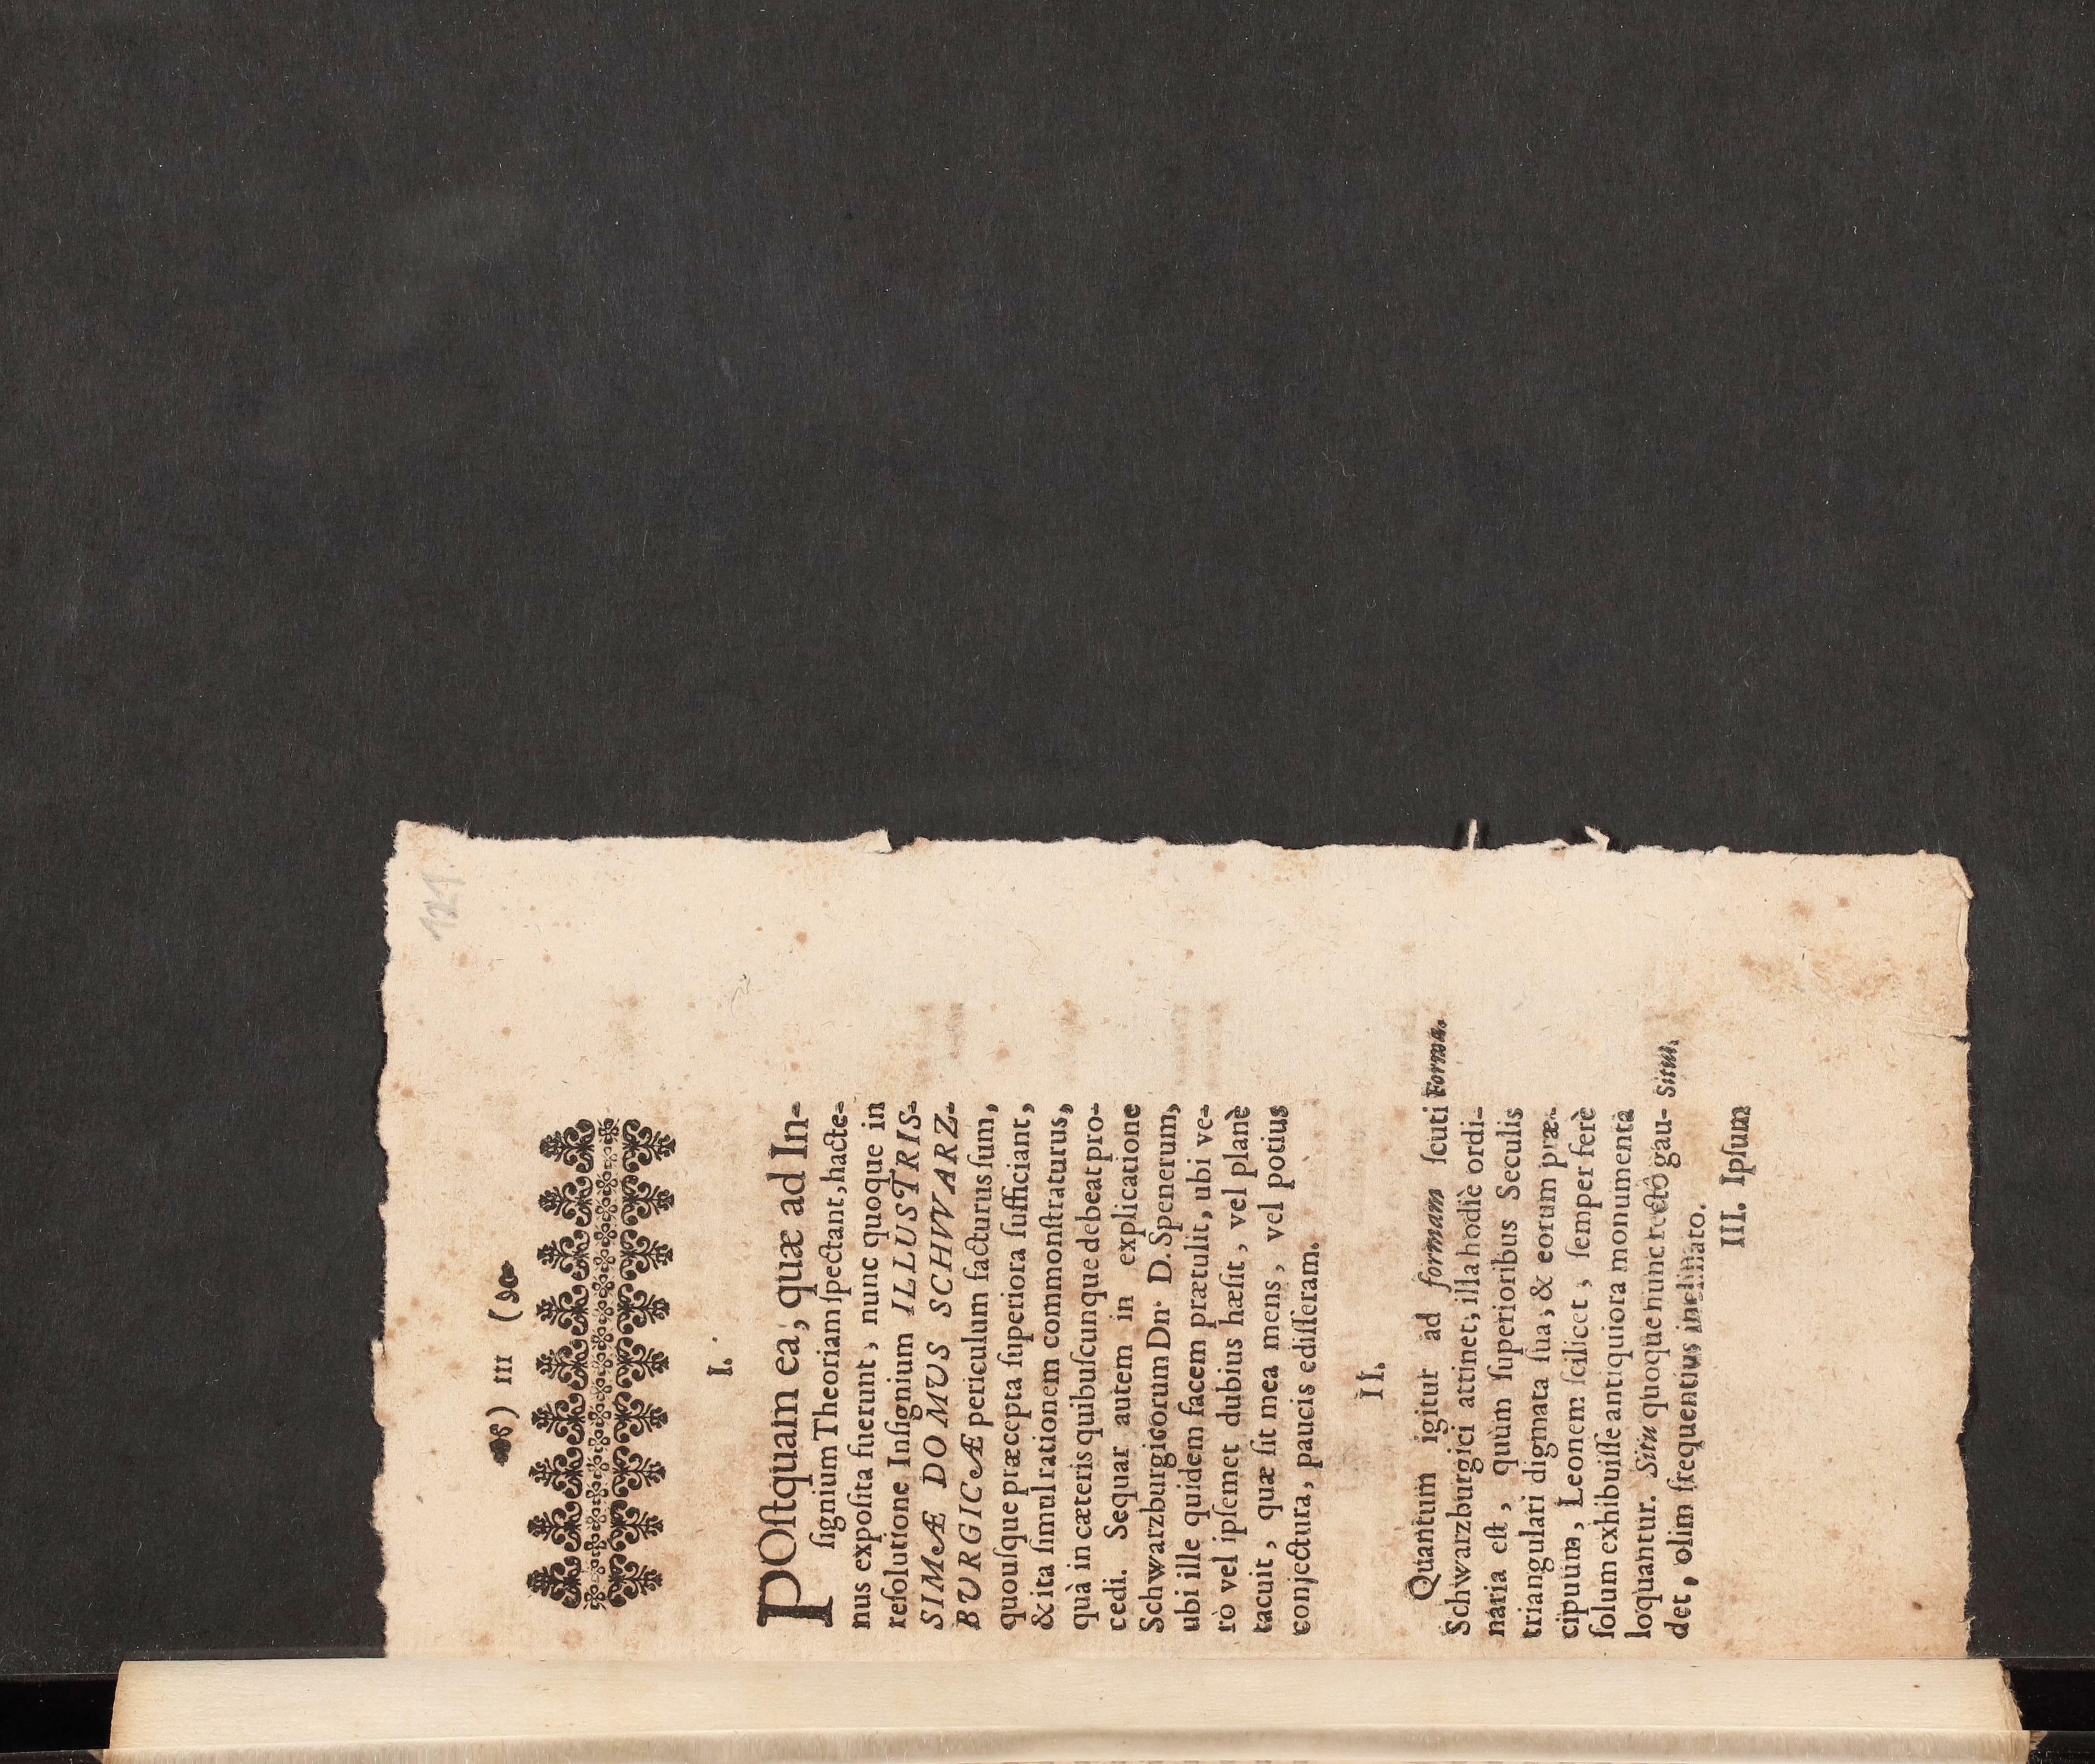 121
) III (
I.
POſtquam ea, quæ ad In-
ſignium Theoriam ſpectant, hacte-
nus expoſita fuerunt, nunc quoque in
reſolutione Inſignium ILLUSTRIS-
SIMÆ DOMUS SCHVVARZ-
BURGICÆ periculum facturus ſum,
quouſque præcepta ſuperiora ſufficiant,
& ita ſimul rationem commonſtraturus,
quà in cæteris quibuſcunque debeat pro-
cedi. Sequar autem in explicatione
Schwarzburgicorum Dn. D. Spenerum,
ubi ille quidem facem prætulit, ubi ve-
rò vel ipſemet dubius hæſit, vel planè
tacuit, quæ ſit mea mens, vel potius
conjectura, paucis ediſſeram.
II.
Quantum igitur ad formam ſcuti Forma.
Schwarzburgici attinet; illa hodiè ordi-
naria eſt, quùm ſuperioribus Seculis
triangulari dignata ſua, & eorum præ-
cipuum, Leonem ſcilicet, ſemper ferè
ſolum exhibuiſſe antiquiora monumenta
loquantur. Situ quoque nunc rectô gau- Situs.
det, olim frequentius inclinato.
III. Ipſum